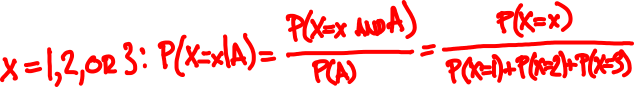 x = 1, 2, OR 3: P(X=x|A) = P(X=x AND A) / P(A) = P(X=x) / P(X=1)+P(X=2)+P(X=3)